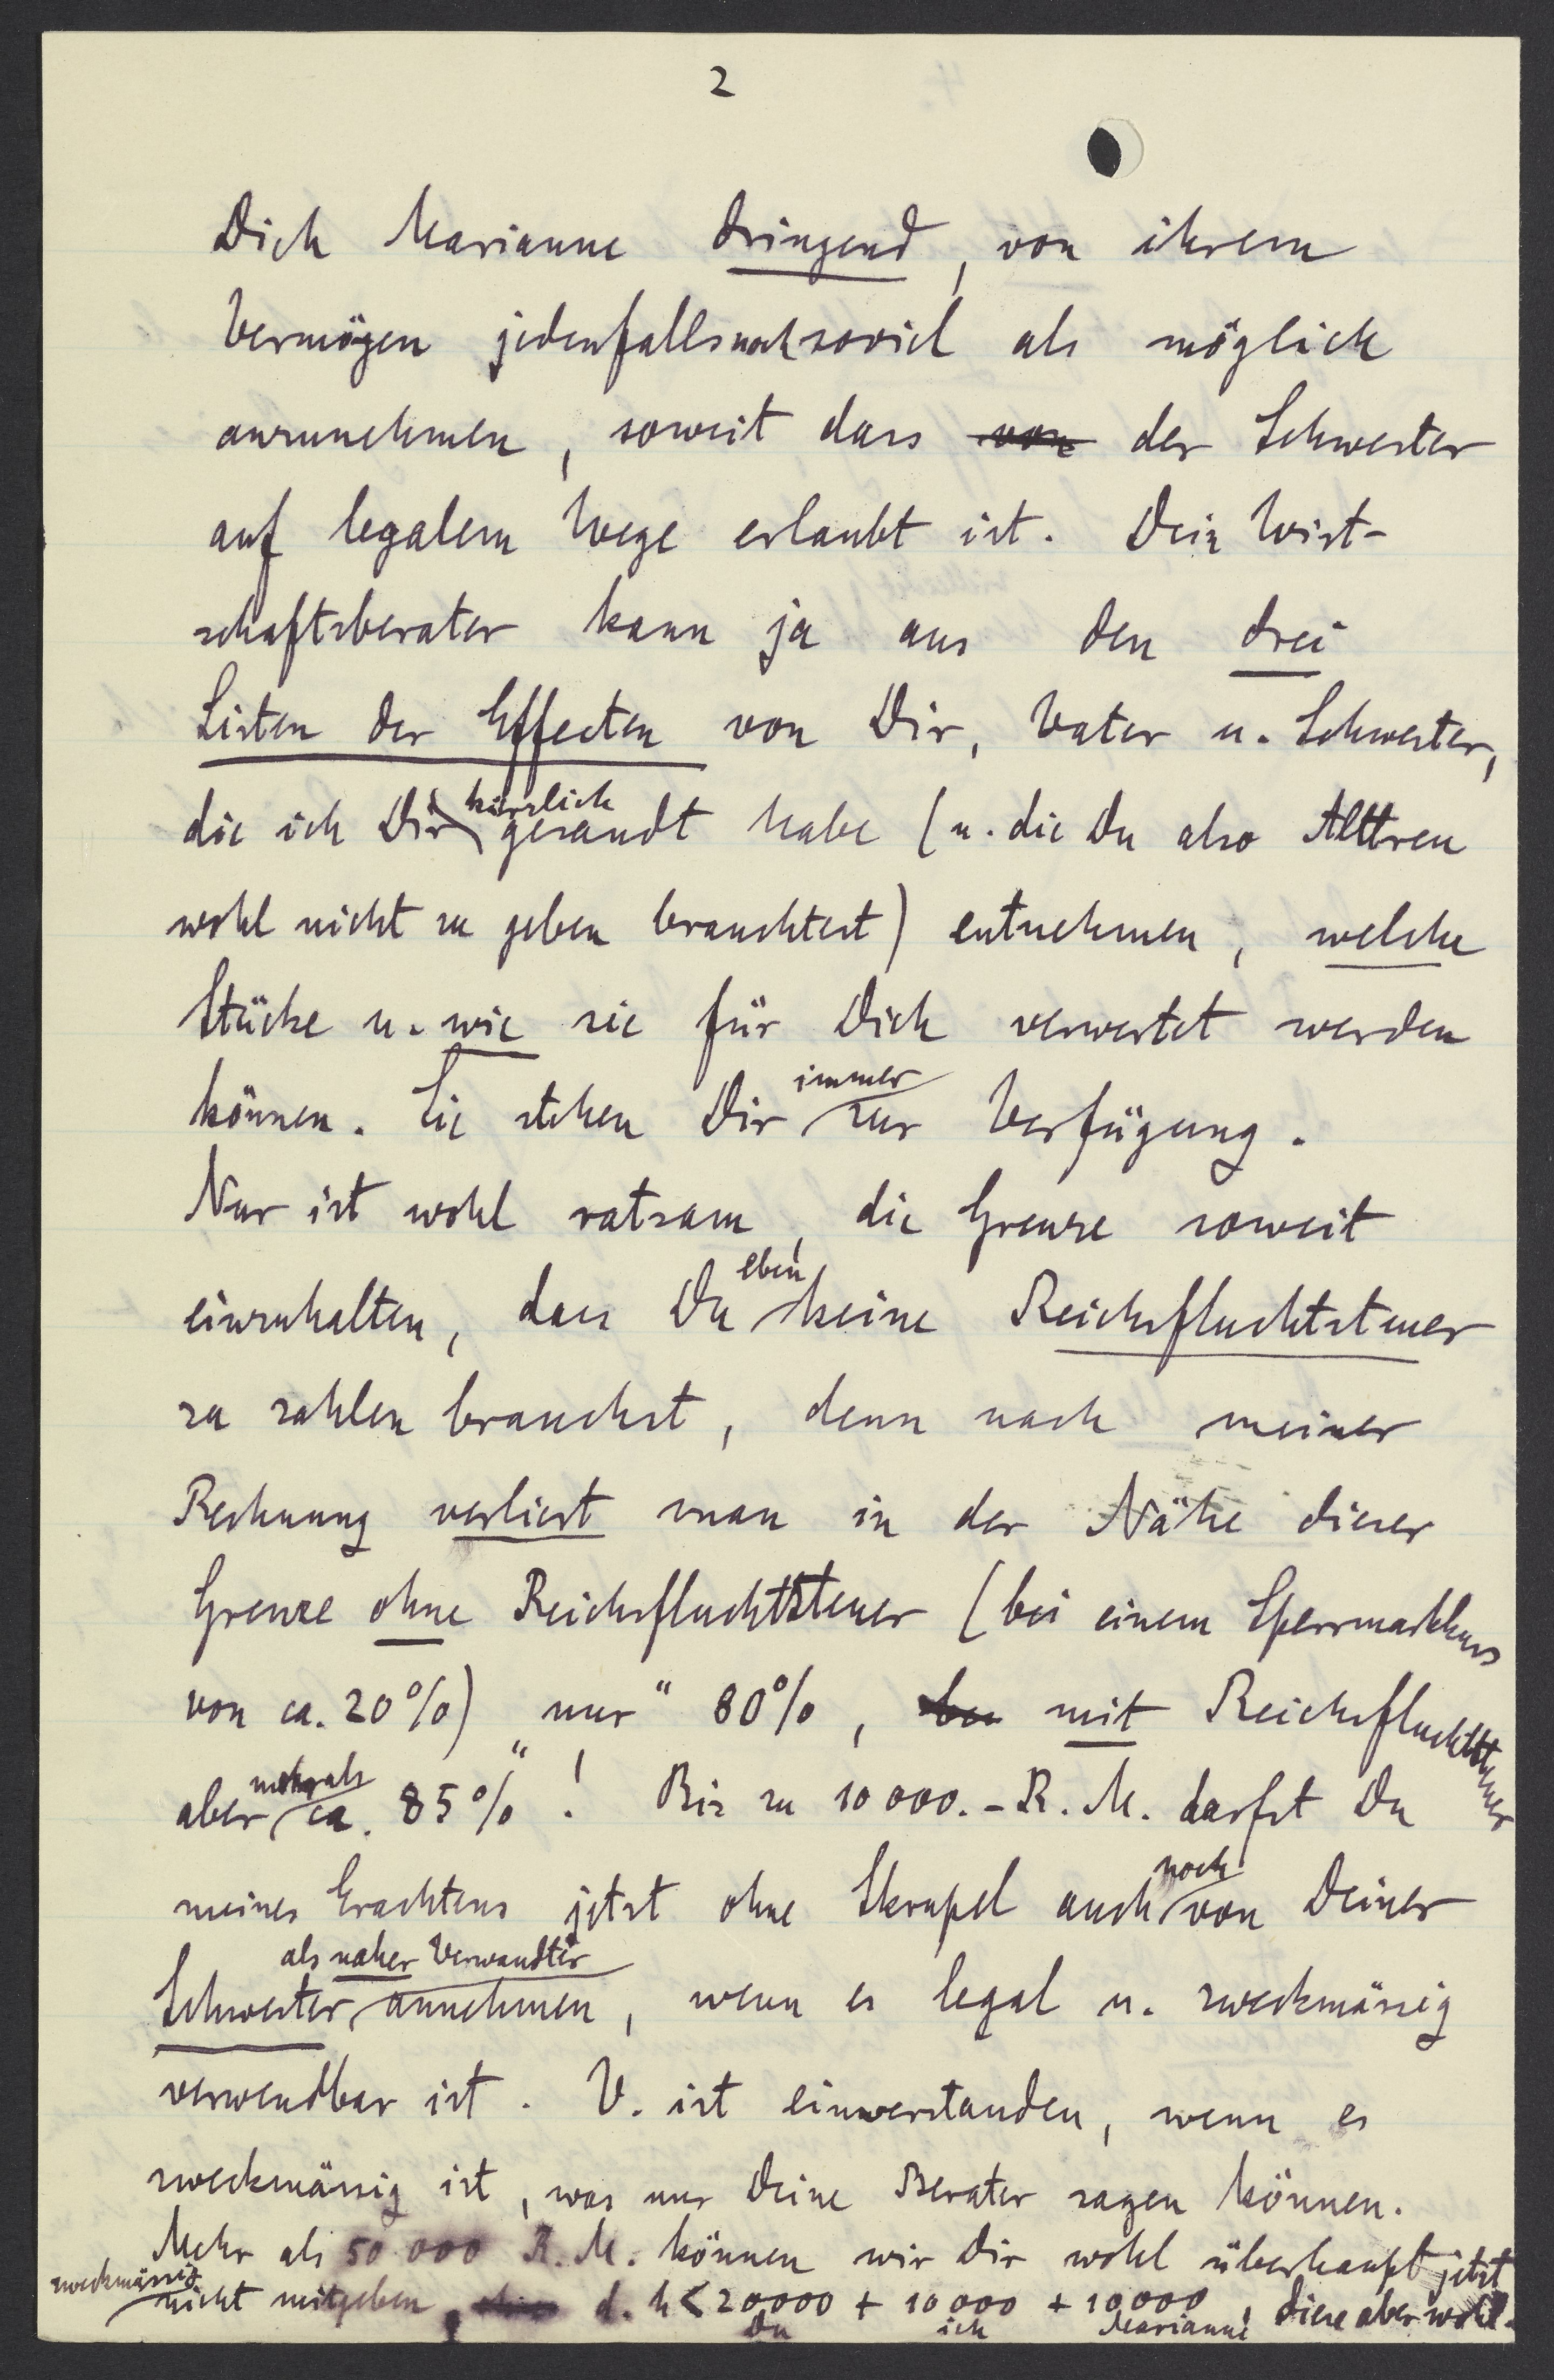 2
Dich Marianne dringend, von ihrem
Vermögen jedenfalls noch soviel als möglich
anzunehmen, soweit dass von der Schwester
auf legalem Wege erlaubt ist. Dein Wirt-
schaftsberater kann ja aus den drei
Listen der Effecten von Dir, Vater u. Schwester,
kürzlich
die ich Dir gesandt habe (u. die Du also Alttreu
wohl nicht zu geben brauchtest) entnehmen, welche
Stücke u. wie sie für Dich verwertet werden
immer
können. Sie stehen Dir zur Verfügung.
Nur ist wohl ratsam, die Grenze soweit
eben
einzuhalten, dass Du keine Reichsfluchtsteuer
zu zahlen brauchst, denn nach meiner
Rechnung verliert man in der Nähe dieser
Grenze ohne Reichsfluchtsteuer (bei einem Sperrmarkkurs
von ca. 20%) „nur“ 80%, mit Reichsfluchtsteuer
mehr als
aber ca. 85%! Bis zu 10000.- R.M. darfst Du
noch
meines Erachtens jetzt ohne Skrupel auch von Deiner
als naher Verwandter
Schwester annehmen, wenn es legal u. zweckmässig
verwendbar ist. V. ist einverstanden, wenn es
zweckmässig ist, was nur Deine Berater sagen können.
Mehr als 50 000 R.M. können wir Dir wohl überhaupt jetzt
zweckmässig
nicht mitgeben, d. h < 20000 + 10000 + 10000, diese aber wohl.
Du ich Marianne